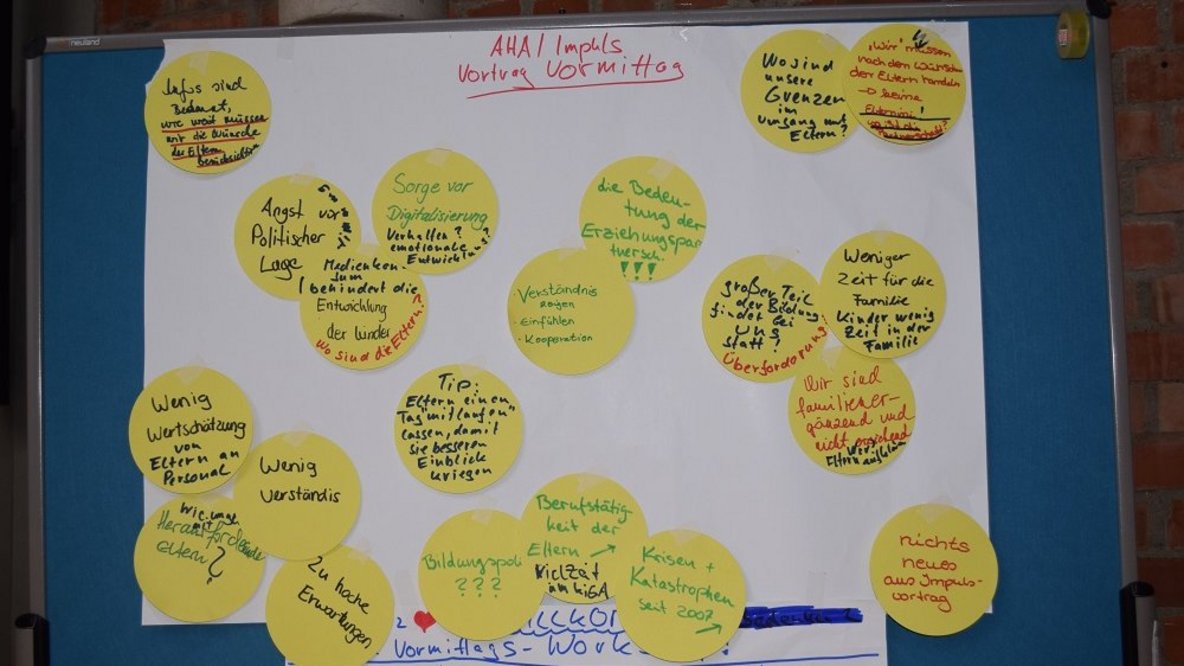 neuland
AHA / Impuls
Vortrag Vormittag
Infos sind
Bekannt,
wie weit müssen
wir die Wünsche
der Eltern
Wo sind
unsere
Grenzen
im
umgang mit
Eltern?
"Wir" müssen
nach den Wünschen
der Eltern handeln
→ keine
Angst vor
Politischer
Lage
Sorge vor
Digitalisierung
Verhalten?
emotionale
Entwicklung?
Medienkon-
sum
behindert die
Entwicklung
der Kinder
wo sind die Eltern?
die Bedeu-
tung der
Erziehungspar
tnersch.
!!!
· Verständnis
zeigen
· Einfühlen
· Kooperation
großer Teil
der Bildung
findet bei
uns
statt?
Überforderung
Weniger
Zeit für die
Familie
Kinder wenig
Zeit in der
Familie
Wir sind
familiener-
gänzend und
nicht
Wenig
Wertschätzung
von
Eltern an
Personal
Wenig
Verständis
mit
Herausfordernde
Eltern?
Zu hohe
Erwartungen
Tip:
Eltern einen
Tag "mitlaufen"
lassen, damit
sie besseren
Einblick
kriegen
Bildungspoli
? ? ?
Berufstätig-
keit der
Eltern
viel Zeit
im KiGA
Krisen +
Katastrophen
seit 2007
nichts
neues
aus Impuls-
vortrag
2
Vormittags-